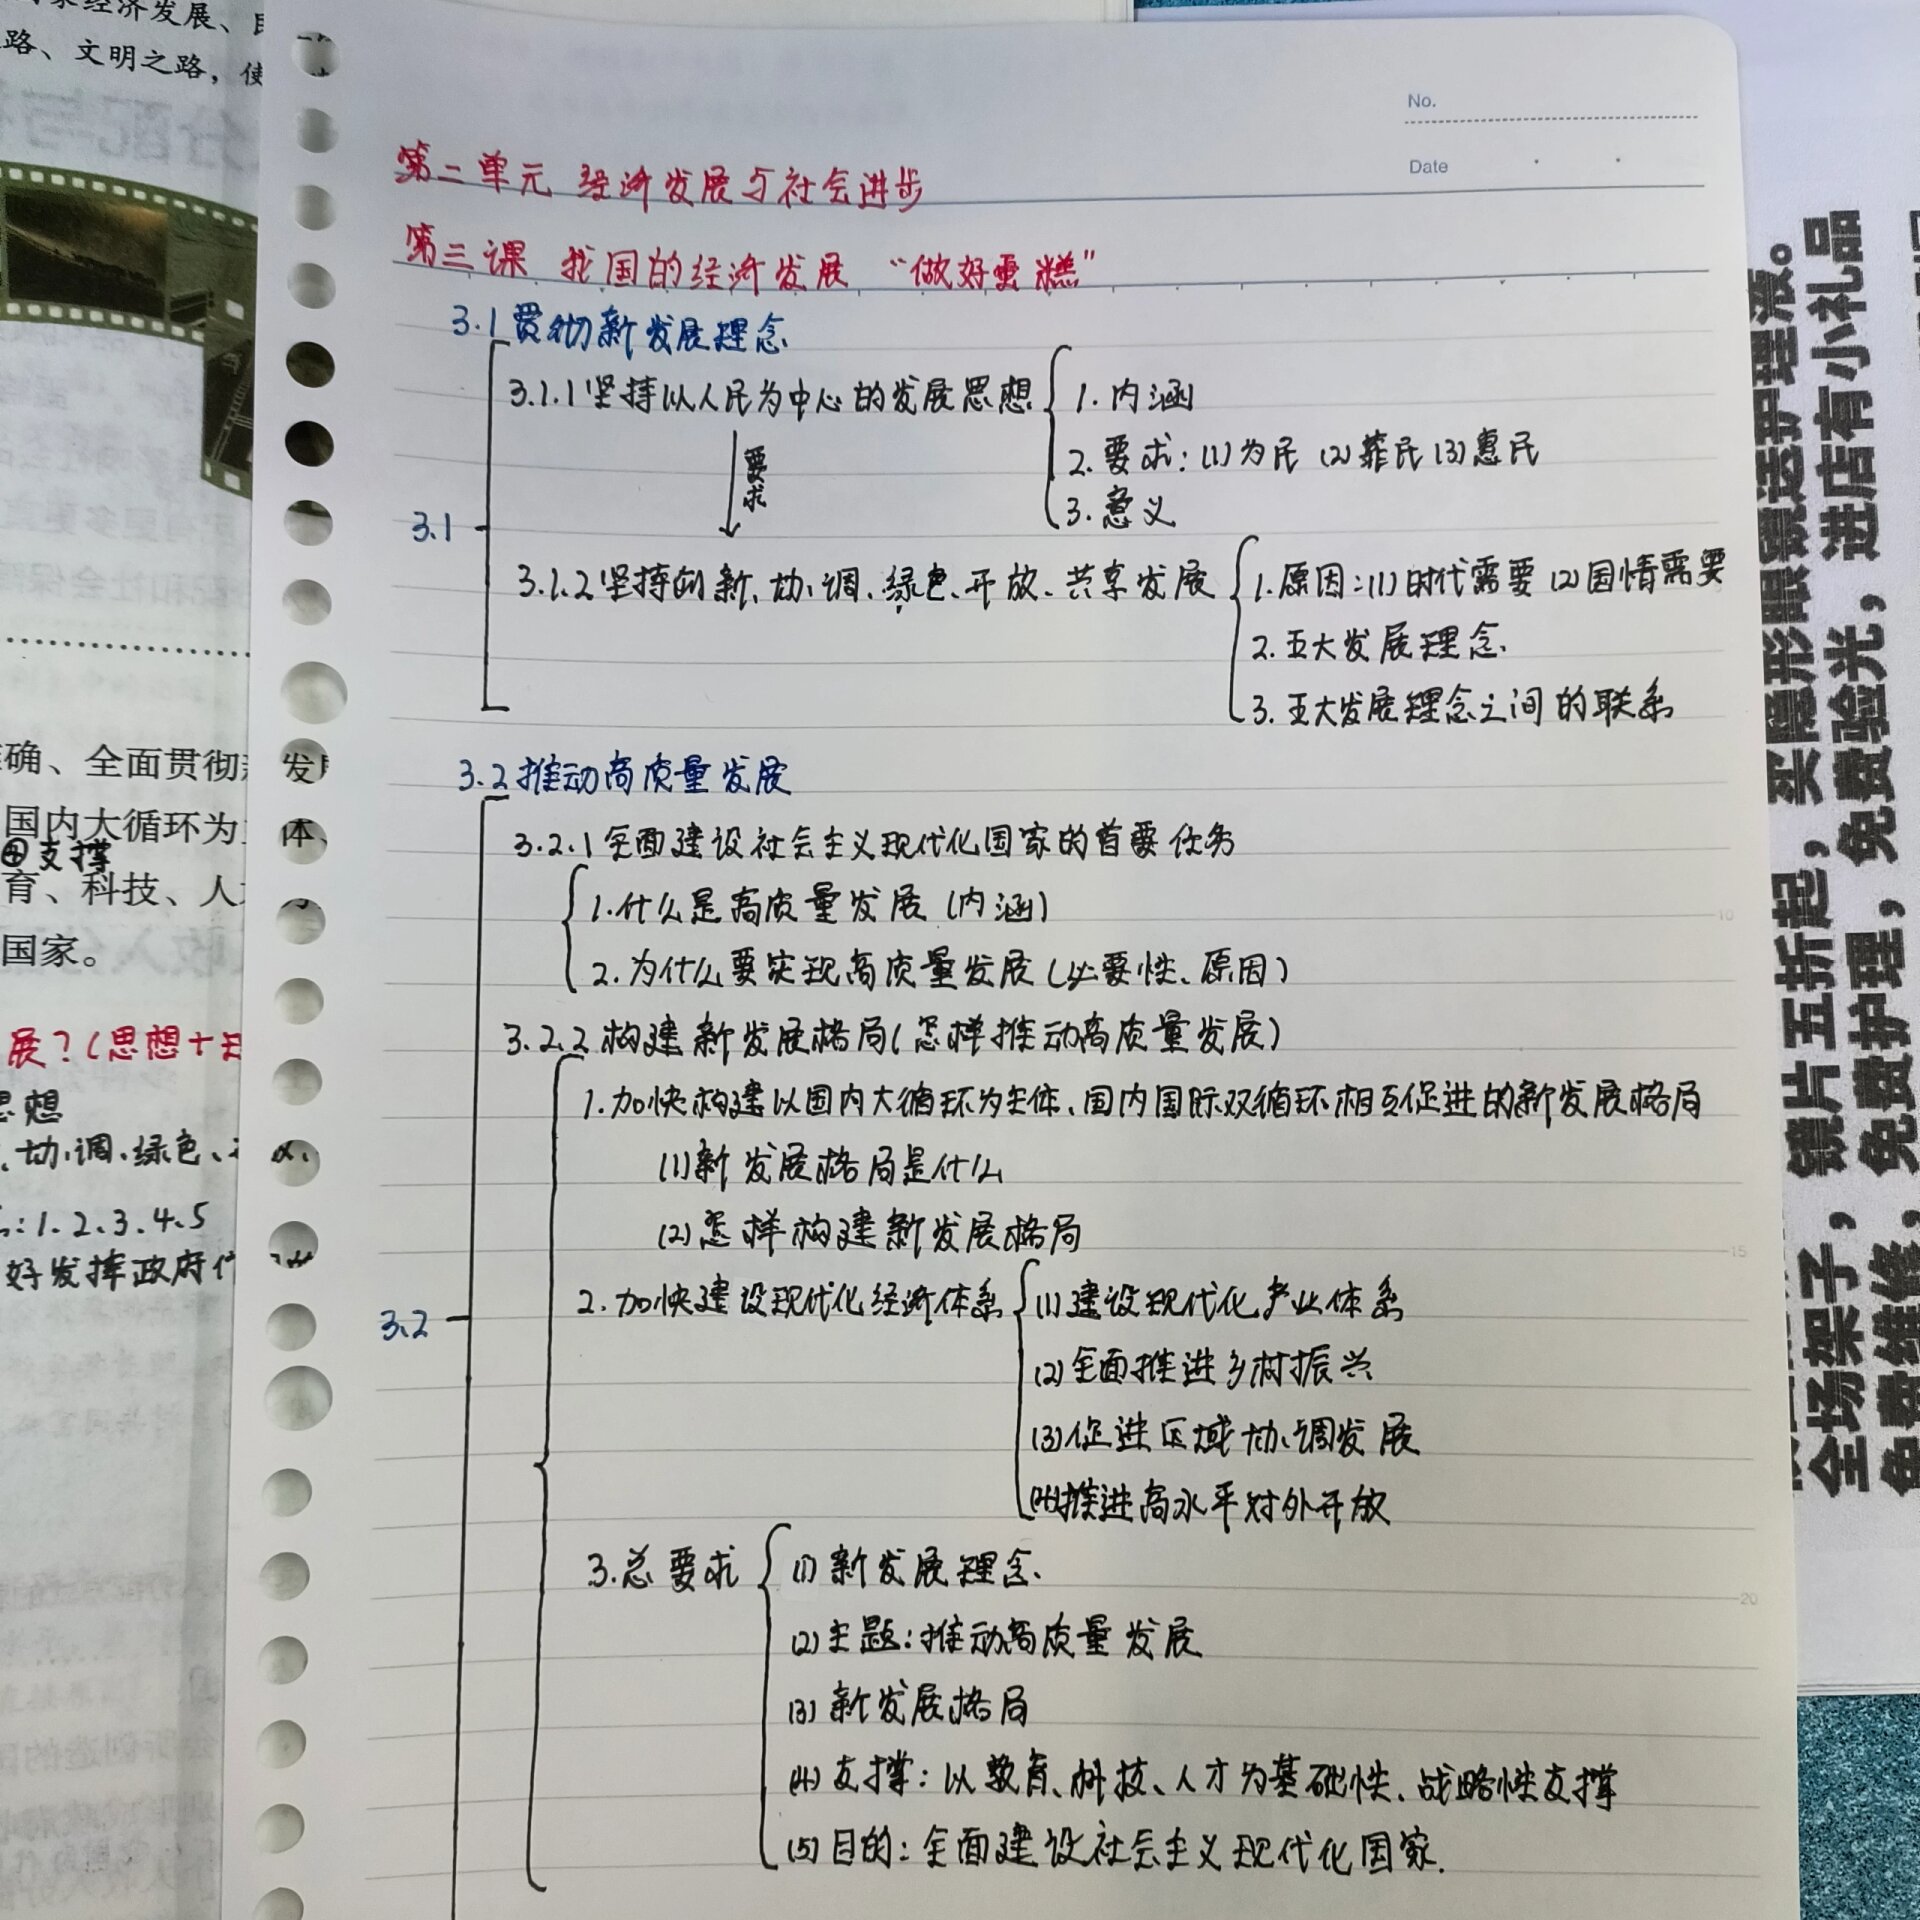 家经济发展、
路、文明之路，使
确、全面贯彻
国内大循环为
④支撑
育、科技、人
国家。
展？(思想+
思想
、协调、绿色、
:1.2.3.4.5
好发挥政府
发
体、
No.
Date
第二单元 经济发展与社会进步
第三课 我国的经济发展 “做好蛋糕”
3.1贯彻新发展理念
3.1
3.1.1坚持以人民为中心的发展思想
1.内涵
2.要求:(1)为民 (2)靠民 (3)惠民
3.意义
要求
3.1.2坚持创新、协调、绿色、开放、共享发展
1.原因:(1)时代需要 (2)国情需要
2.五大发展理念.
3.五大发展理念之间的联系
3.2推动高质量发展
3.2.1全面建设社会主义现代化国家的首要任务
1.什么是高质量发展(内涵)
2.为什么要实现高质量发展(必要性、原因)
3.2.2构建新发展格局(怎样推动高质量发展)
1.加快构建以国内大循环为主体、国内国际双循环相互促进的新发展格局
(1)新发展格局是什么
(2)怎样构建新发展格局
3.2
2.加快建设现代化经济体系
(1)建设现代化产业体系
(2)全面推进乡村振兴
(3)促进区域协调发展
(4)推进高水平对外开放
3.总要求
(1)新发展理念.
(2)主题:推动高质量发展
(3)新发展格局
(4)支撑:以教育、科技、人才为基础性、战略性支撑
(5)目的:全面建设社会主义现代化国家.
10
15
20
镜片五折起，买隐形眼镜送护理液。
全场架子，免费护理，免费验光，进店有小礼品
免费维修，